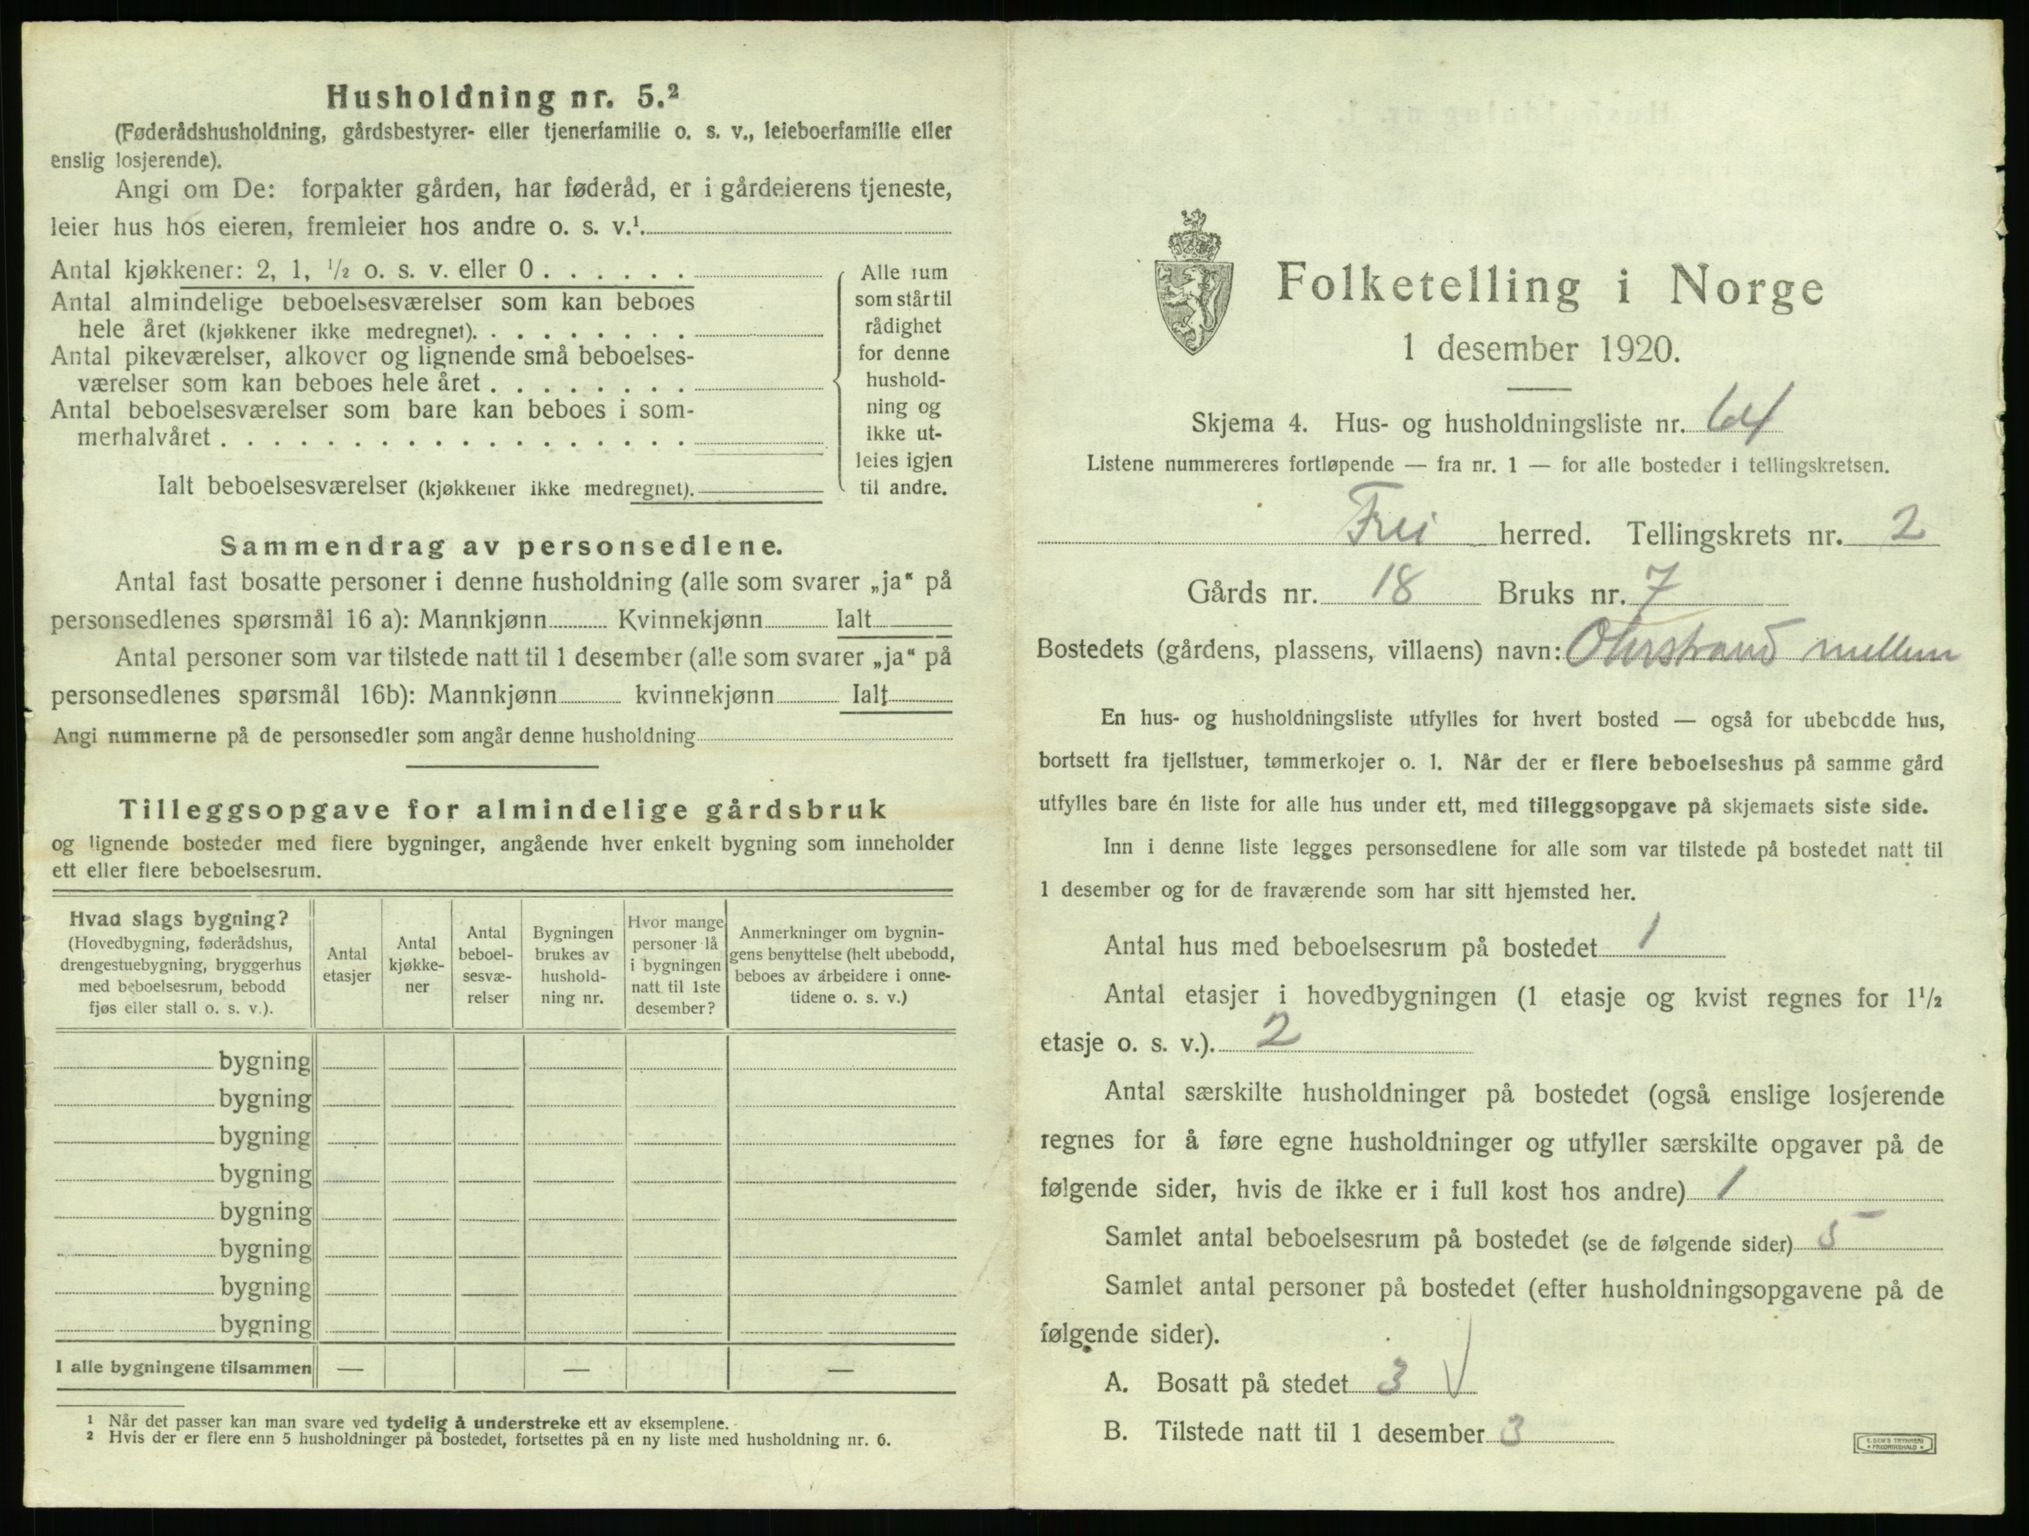 Husholdning nr. 5.²
(Føderådshusholdning, gårdsbestyrer- eller tjenerfamilie o. s. v., leieboerfamilie eller
enslig losjerende).
Angi om De: forpakter gården, har føderåd, er i gårdeierens tjeneste,
leier hus hos eieren, fremleier hos andre o. s. v.¹
Antal kjøkkener: 2, 1, ½ o. s. v. eller 0 . . . . . .
Antal almindelige beboelsesværelser som kan beboes
hele året (kjøkkener ikke medregnet). . . . . . . . .
Antal pikeværelser, alkover og lignende små beboelses-
værelser som kan beboes hele året . . . . . . . .
Antal beboelsesværelser som bare kan beboes i som-
merhalvåret . . . . . . . . . . . . . . . . . .
Ialt beboelsesværelser (kjøkkener ikke medregnet).
Alle rum
som står til
rådighet
for denne
hushold-
ning og
ikke ut-
leies igjen
til andre.
Sammendrag av personsedlene.
Antal fast bosatte personer i denne husholdning (alle som svarer „ja“ på
personsedlenes spørsmål 16 a): Mannkjønn Kvinnekjønn Ialt
Antal personer som var tilstede natt til 1 desember (alle som svarer „ja“ på
personsedlenes spørsmål 16b): Mannkjønn kvinnekjønn Ialt
Angi nummerne på de personsedler som angår denne husholdning
Tilleggsopgave for almindelige gårdsbruk
og lignende bosteder med flere bygninger, angående hver enkelt bygning som inneholder
ett eller flere beboelsesrum.
Hvad slags bygning?
(Hovedbygning, føderådshus,
drengestuebygning, bryggerhus
med beboelsesrum, bebodd
fjøs eller stall o. s. v.).
Antal
etasjer
Antal
kjøkke-
ner
Antal
beboel-
sesvæ-
relser
Bygningen
brukes av
hushold-
ning nr.
Hvor mange
personer lå
i bygningen
natt til 1ste
desember?
Anmerkninger om bygnin-
gens benyttelse (helt ubebodd,
beboes av arbeidere i onne-
tidene o. s. v.)
bygning
bygning
bygning
bygning
bygning
bygning
bygning
bygning
I alle bygningene tilsammen — — —
¹ Når det passer kan man svare ved tydelig å understreke ett av eksemplene.
² Hvis der er flere enn 5 husholdninger på bostedet, fortsettes på en ny liste med husholdning nr. 6.
Folketelling i Norge
1 desember 1920.
Skjema 4. Hus- og husholdningsliste nr. 64
Listene nummereres fortløpende — fra nr. 1 — for alle bosteder i tellingskretsen.
Frei herred. Tellingskrets nr. 2
Gårds nr. 18 Bruks nr. 7
Bostedets (gårdens, plassens, villaens) navn: Ohrstrand mellem
En hus- og husholdningsliste utfylles for hvert bosted — også for ubebodde hus,
bortsett fra fjellstuer, tømmerkojer o. l. Når der er flere beboelseshus på samme gård
utfylles bare én liste for alle hus under ett, med tilleggsopgave på skjemaets siste side.
Inn i denne liste legges personsedlene for alle som var tilstede på bostedet natt til
1 desember og for de fraværende som har sitt hjemsted her.
Antal hus med beboelsesrum på bostedet 1
Antal etasjer i hovedbygningen (1 etasje og kvist regnes for 1½
etasje o. s. v.). 2
Antal særskilte husholdninger på bostedet (også enslige losjerende
regnes for å føre egne husholdninger og utfyller særskilte opgaver på de
følgende sider, hvis de ikke er i full kost hos andre) 1
Samlet antal beboelsesrum på bostedet (se de følgende sider) 5
Samlet antal personer på bostedet (efter husholdningsopgavene på de
følgende sider).
A. Bosatt på stedet 3 √
B. Tilstede natt til 1 desember 3